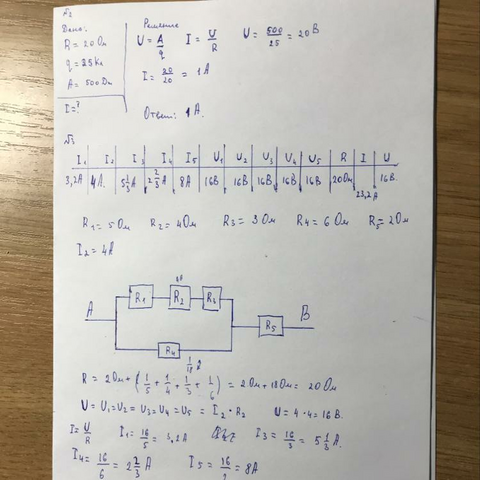 √2
Дано:
R = 20 Ом
q = 25 Кл
A = 500 Дж
I = ?
Решение
U = A/q I = U/R U = 500/25 = 20 В
I = 20/20 = 1 A
Ответ: 1 A.
√3
I1 I2 I3 I4 I5 U1 U2 U3 U4 U5 R I U
3,2A 4A 5 1/3 A 2 2/3 A 8A 16В 16В 16В 16В 16В 20Ом 23,2A 16В
R1 = 5 Ом R2 = 4 Ом R3 = 3 Ом R4 = 6 Ом R5 = 2 Ом
I2 = 4 A
A R1 R2 R3 B
R5
R4
R = 2 Ом + (1/5 + 1/4 + 1/3 + 1/6) = 2 Ом + 18 Ом = 20 Ом
U = U1 = U2 = U3 = U4 = U5 = I2 · R2 U = 4 · 4 = 16 В.
I = U/R I1 = 16/5 = 3.2 A I3 = 16/3 = 5 1/3 A.
I4 = 16/6 = 2 2/3 A I5 = 16/2 = 8A